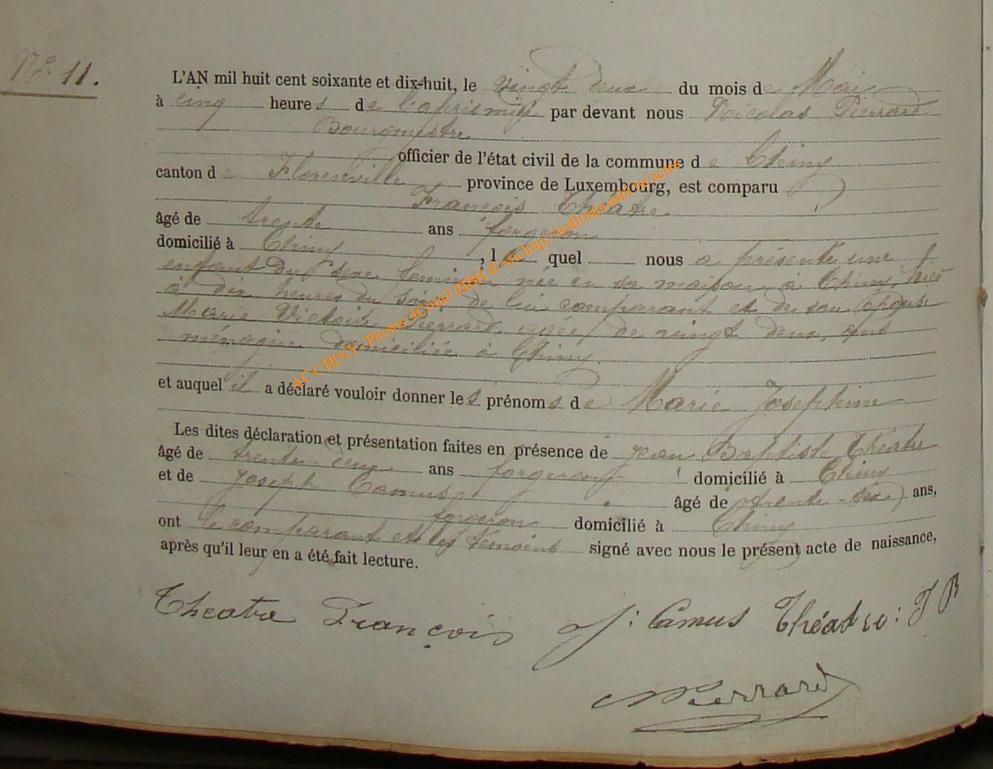 No. 11.
L'AN mil huit cent soixante et dix-huit, le vingt deux du mois de Mai
à cinq heures de l'après midi par devant nous Nicolas Pierrard
Bourgmestre
officier de l'état civil de la commune de Chiny
canton de Florenville province de Luxembourg, est comparu
François Théatre
âgé de trente ans forgeron
domicilié à Chiny, le quel nous a présenté une
enfant du sexe feminin née en sa maison à Chiny, hier
à dix heures du soir, de lui comparant et de son épouse
Marie Victoire Pierrard agée de vingt deux ans
ménagère domiciliée à Chiny.
et auquel il a déclaré vouloir donner les prénoms de Marie Josephine
Les dites déclaration et présentation faites en présence de Jean Baptiste Théatre
âgé de trente deux ans forgeron domicilié à Chiny
et de Joseph Camus, âgé de trente-six ans,
forgeron domicilié à Chiny
ont le comparant et les témoins signé avec nous le présent acte de naissance,
après qu'il leur en a été fait lecture.
Theatre François J: Camus Théatre: J B
NPierrard